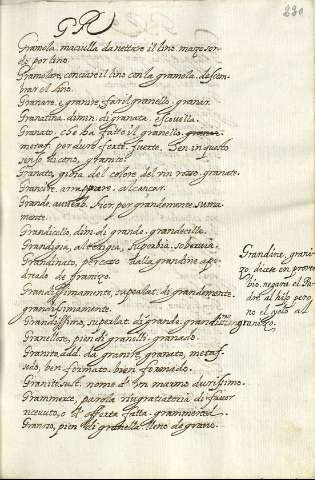 GRA
230
Gramola. maciulla da nettare il lino. mazo sor-
do per lino.
Gramolare, conciare il lino con la gramola. descem-
brar el lino.
Granare, e granire, far il granello, granar.
Granatina. dimin. di granata. escovilla.
Granato, che ha fatto il granello. granar.
metaf. per duro forte. fuerte. Ben in questo
senso dicono, granito.
Granato, gioia del colore del vin rosso. granate.
Grancire. arrappare. alcançar.
Grande. avverb. fior. per grandemente. suma-
mente.
Grandicello, dim. di grande. grandecillo.
Grandigia, alterigia, superbia. soberuia.
Grandinato, percosso dalla grandine. ape-
dreado de granizo.
Grandissimamente, superlat. di grandemente.
grandissimamente.
Grandissimo, superlat. di grande. grandissimo
Granelloso, pien di granelli. granado.
Granito add. da granire, granato, metaf.
sodo, ben formato. bien fornado.
Granito sust. nome d'un marmo durissimo.
Grammerce, parola ringratiatoria di favor
ricevuto, o d' offerta fatta. grammerced.
Granoso, pien di granella. lleno de grano.
Grandine, grani-
zo, dicese en prover
bio. negara el Pa-
dre al hijo pero
no el yelo al
granizo.